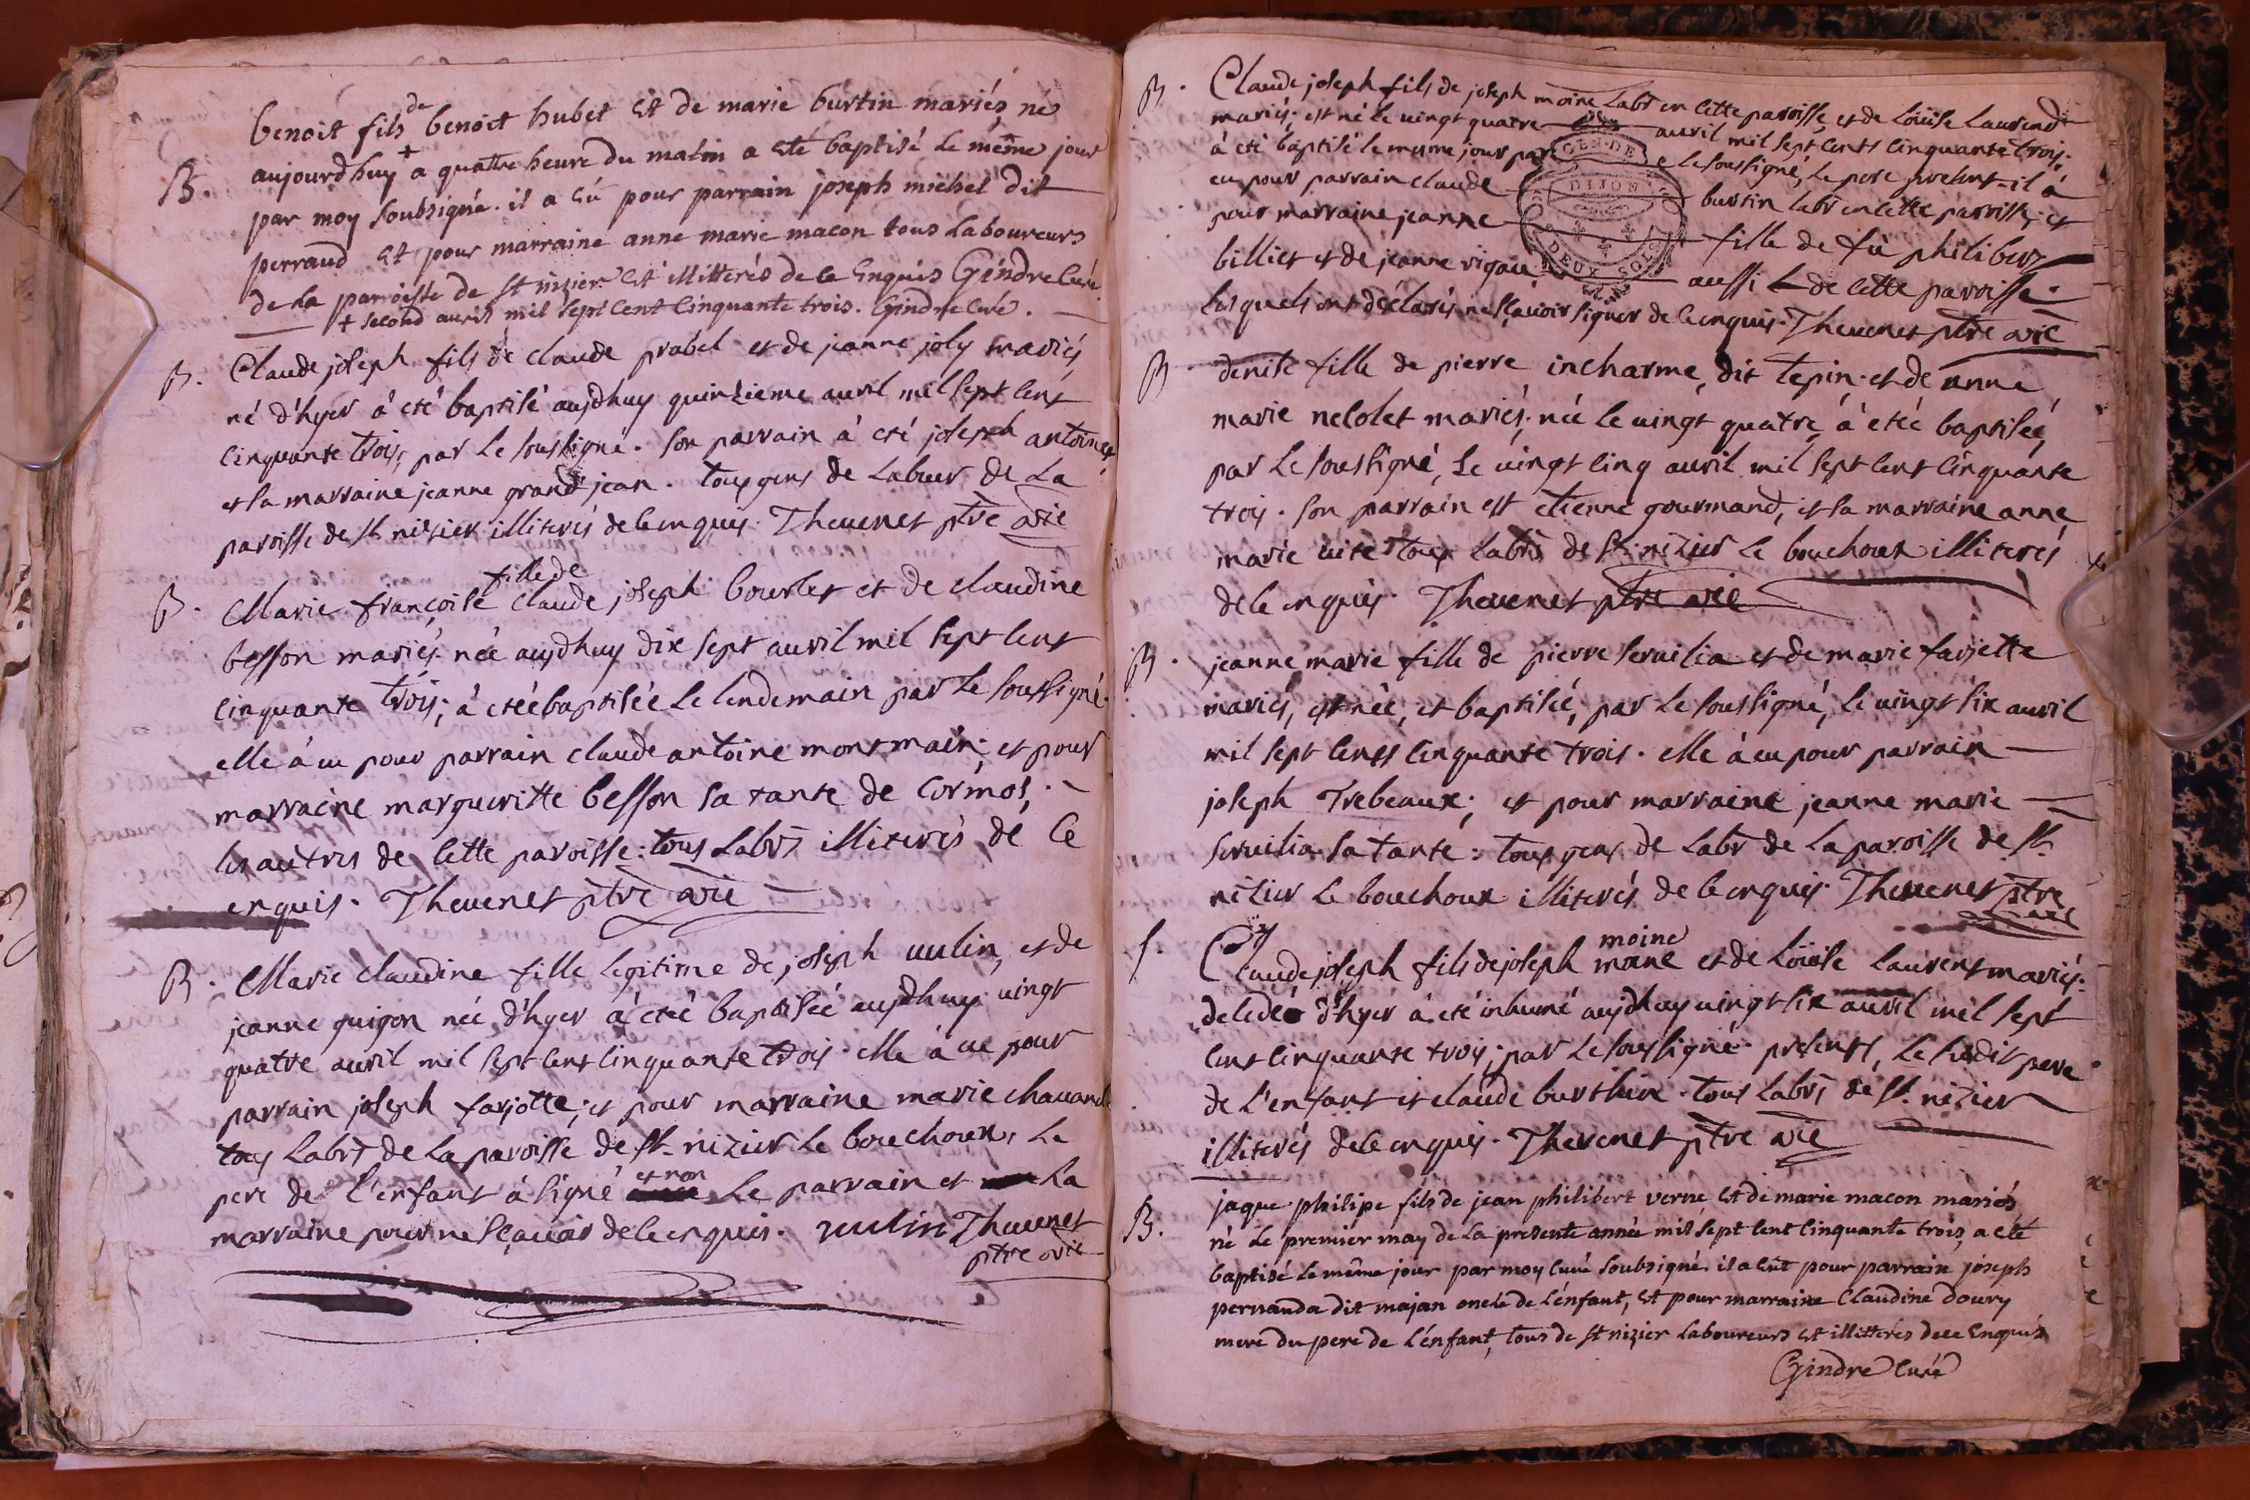 benoit fils de benoit hubet et de marie burtin mariés, né
aujourdhuy + a quatre heure du matin a eté baptisé le même jour
B. par moy soubsigné. il a eù pour parrain joseph michel dit
perraud et pour marraine anne marie macon tous laboureurs
de la parroisse de st nizier et illitterés de ce enquis Gindre curé
+ second auril mil sept cent cinquante trois. Gindre curé.
B. Claude joseph fils de claude probel et de jeanne joly mariés
né d'hyer à eté baptisé aujdhuy quinzieme auril mil sept cent
cinquante trois, par le soussigné. son parrain à eté joseph antoinet
et sa marraine jeanne grand jean. tous gens de labeur de la
paroisse de st nizier illiterés de ce enquis. Theuenet ptre vic
B. Marie françoise fille de claude joseph bourlet et de claudine
besson mariés. née aujdhuy dix sept auril mil sept cent
cinquante trois; à etéé baptisée le lendemain par le soussigné.
elle à eu pour parrain claude antoine montmain; et pour
marraine margueritte besson sa tante de cormos,
les autres de cette paroisse: tous labrs illiterés de ce
enquis. Theuenet ptre vic
B. Marie claudine fille legitime de joseph uulin, et de
jeanne guigon née d'hyer à etéé baptisée aujdhuy uingt
quatre auril mil sept cent cinquante trois. elle à eu pour
parrain joseph farjotte; et pour marraine marie chauand
tous labrs de la paroisse de st. nizier le bouchoux, le
pere de l'enfant à signé et non le parrain et la
marraine pour ne sçauoir de ce enquis. uulin Theuenet
ptre vic
B. Claude joseph fils de joseph moine labr en cette paroisse, et de loüise laurend
mariés; est né le uingt quatre auril mil sept cents cinquante trois;
à eté baptisé le mesme jour par le soussigné, le pere present. il à
eu pour parrain claude burtin labr en cette paroisse; et
pour marraine jeanne fille de fû philibert
billiet et de jeanne rigaud aussi de cette paroisse.
lesquels ont déclarés ne sçauoir signer de ce enquis. Theuenet ptre vic
GEN. DE
DIJON
DEUX SOLS
B. denise fille de pierre incharme, dit tepin. et de anne
marie nelolet mariés; née le uingt quatre, à etéé baptisée,
par le soussigné, le uingt cinq auril mil sept cent cinquante
trois. son parrain est etienne gourmand, et sa marraine anne
marie uite tous labrs de st. nizier le bouchoux illiterés
de ce enquis. Theuenet ptre vic
B. jeanne marie fille de pierre seruilia et de marie farjette
mariés, est née, et baptisée, par le soussigné, le uingt six auril
mil sept cents cinquante trois. elle à eu pour parrain
joseph Trebeaux; et pour marraine jeanne marie
seruilia sa tante; tous gens de labr de la paroisse de st.
nizier le bouchoux illiterés de ce enquis. Theuenet ptre
vic
S. Claude joseph fils de joseph moine et de loüise laurent mariés:
decedé d'hyer à eté inhumé aujdhuy uingt six auril mil sept
cent cinquante trois; par le soussigné. presents, le sudit pere
de l'enfant et claude burthin. tous labrs de st. nizier
illiterés de ce enquis. Theuenet ptre vic
jaque philipe fils de jean philibert verne et de marie macon mariés,
B. né le premier may de la presente année mil sept cent cinquante trois, a eté
baptisé le même jour par moy curé soubsigné. il a eut pour parrain joseph
pernanda dit majan oncle de l'énfant, et pour marraine Claudine doury
mere du pere de l'énfant, tous de st nizier laboureurs et illitterés de ce enquis
Gindre curé